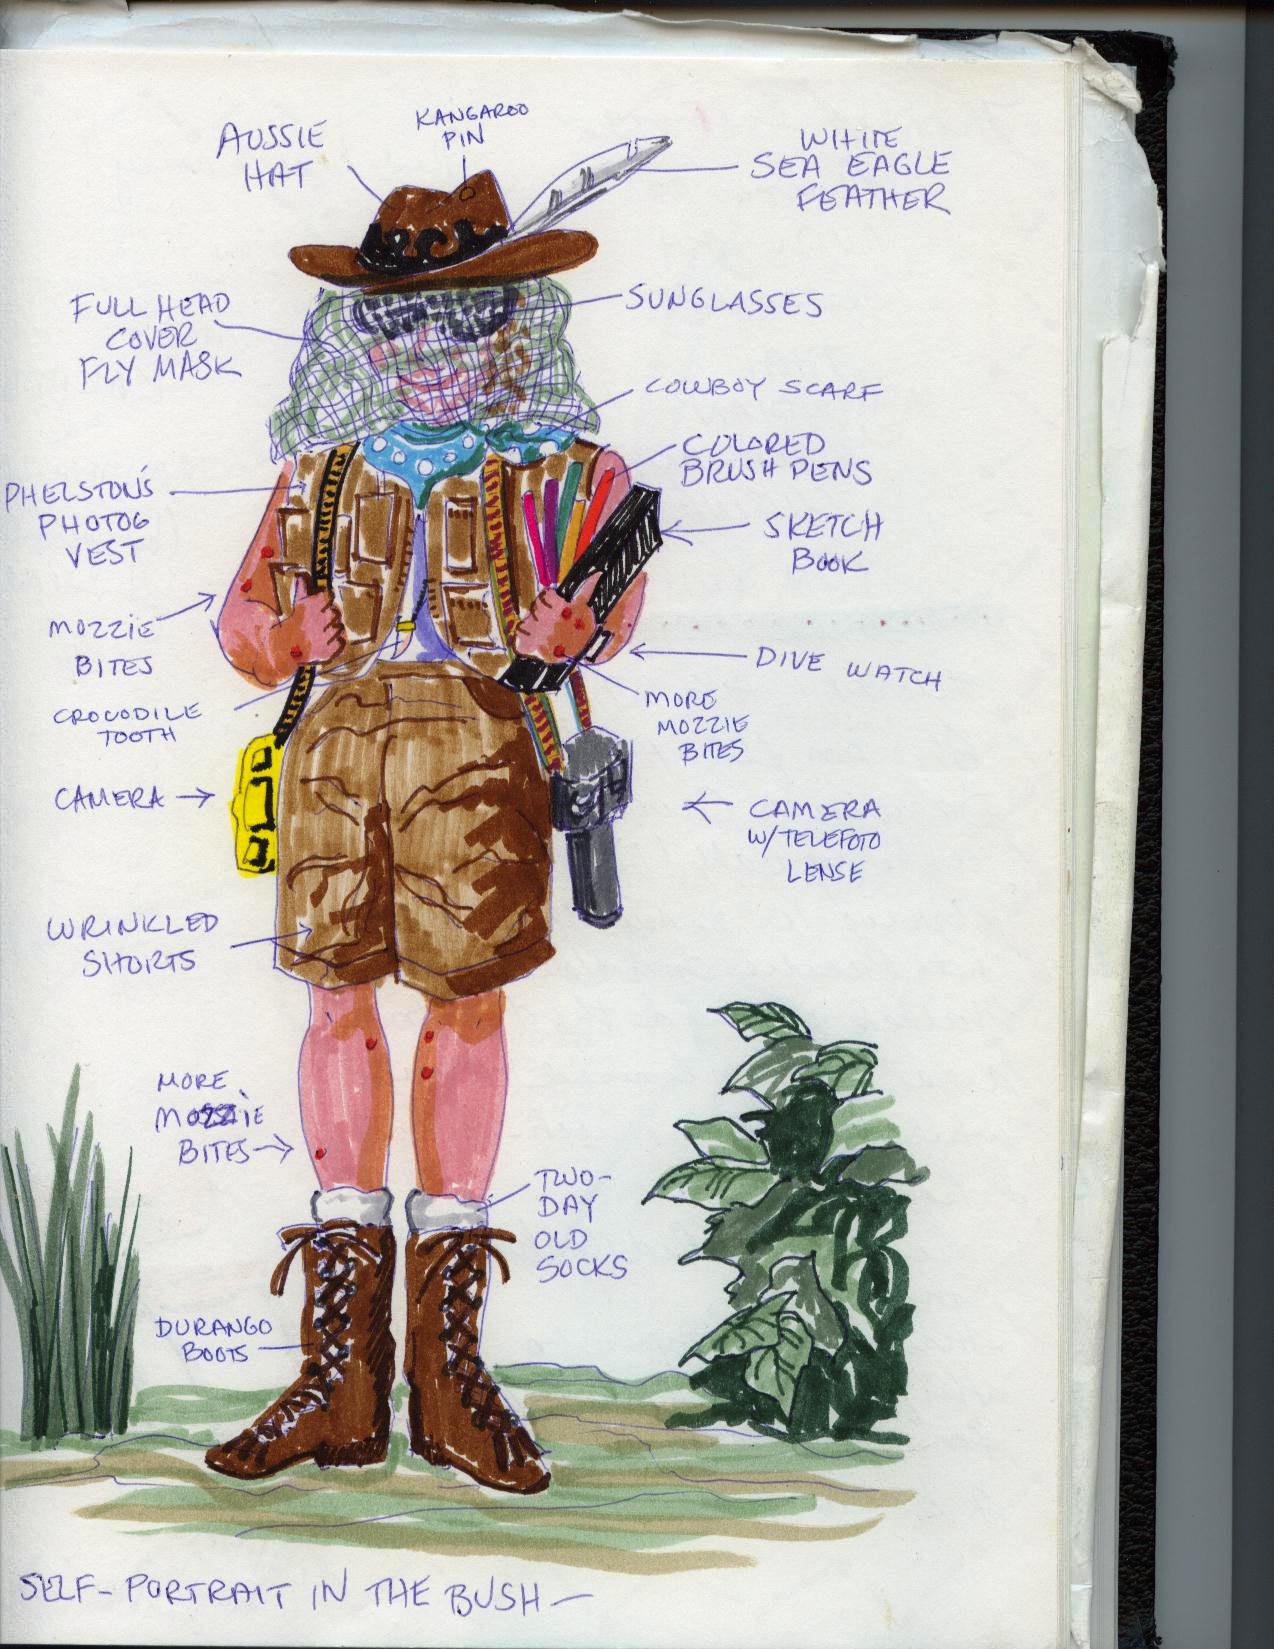 AUSSIE
HAT
KANGAROO
PIN
WHITE
SEA EAGLE
FEATHER
FULL HEAD
COVER
FLY MASK
SUNGLASSES
COWBOY SCARF
COLORED
BRUSH PENS
PHELSTON'S
PHOTOG
VEST
SKETCH
BOOK
MOZZIE
BITES
DIVE WATCH
CROCODILE
TOOTH
MORE
MOZZIE
BITES
CAMERA
CAMERA
W/TELEFOTO
LENSE
WRINKLED
SHORTS
MORE
MOZZIE
BITES
TWO-
DAY
OLD
SOCKS
DURANGO
BOOTS
SELF-PORTRAIT IN THE BUSH—